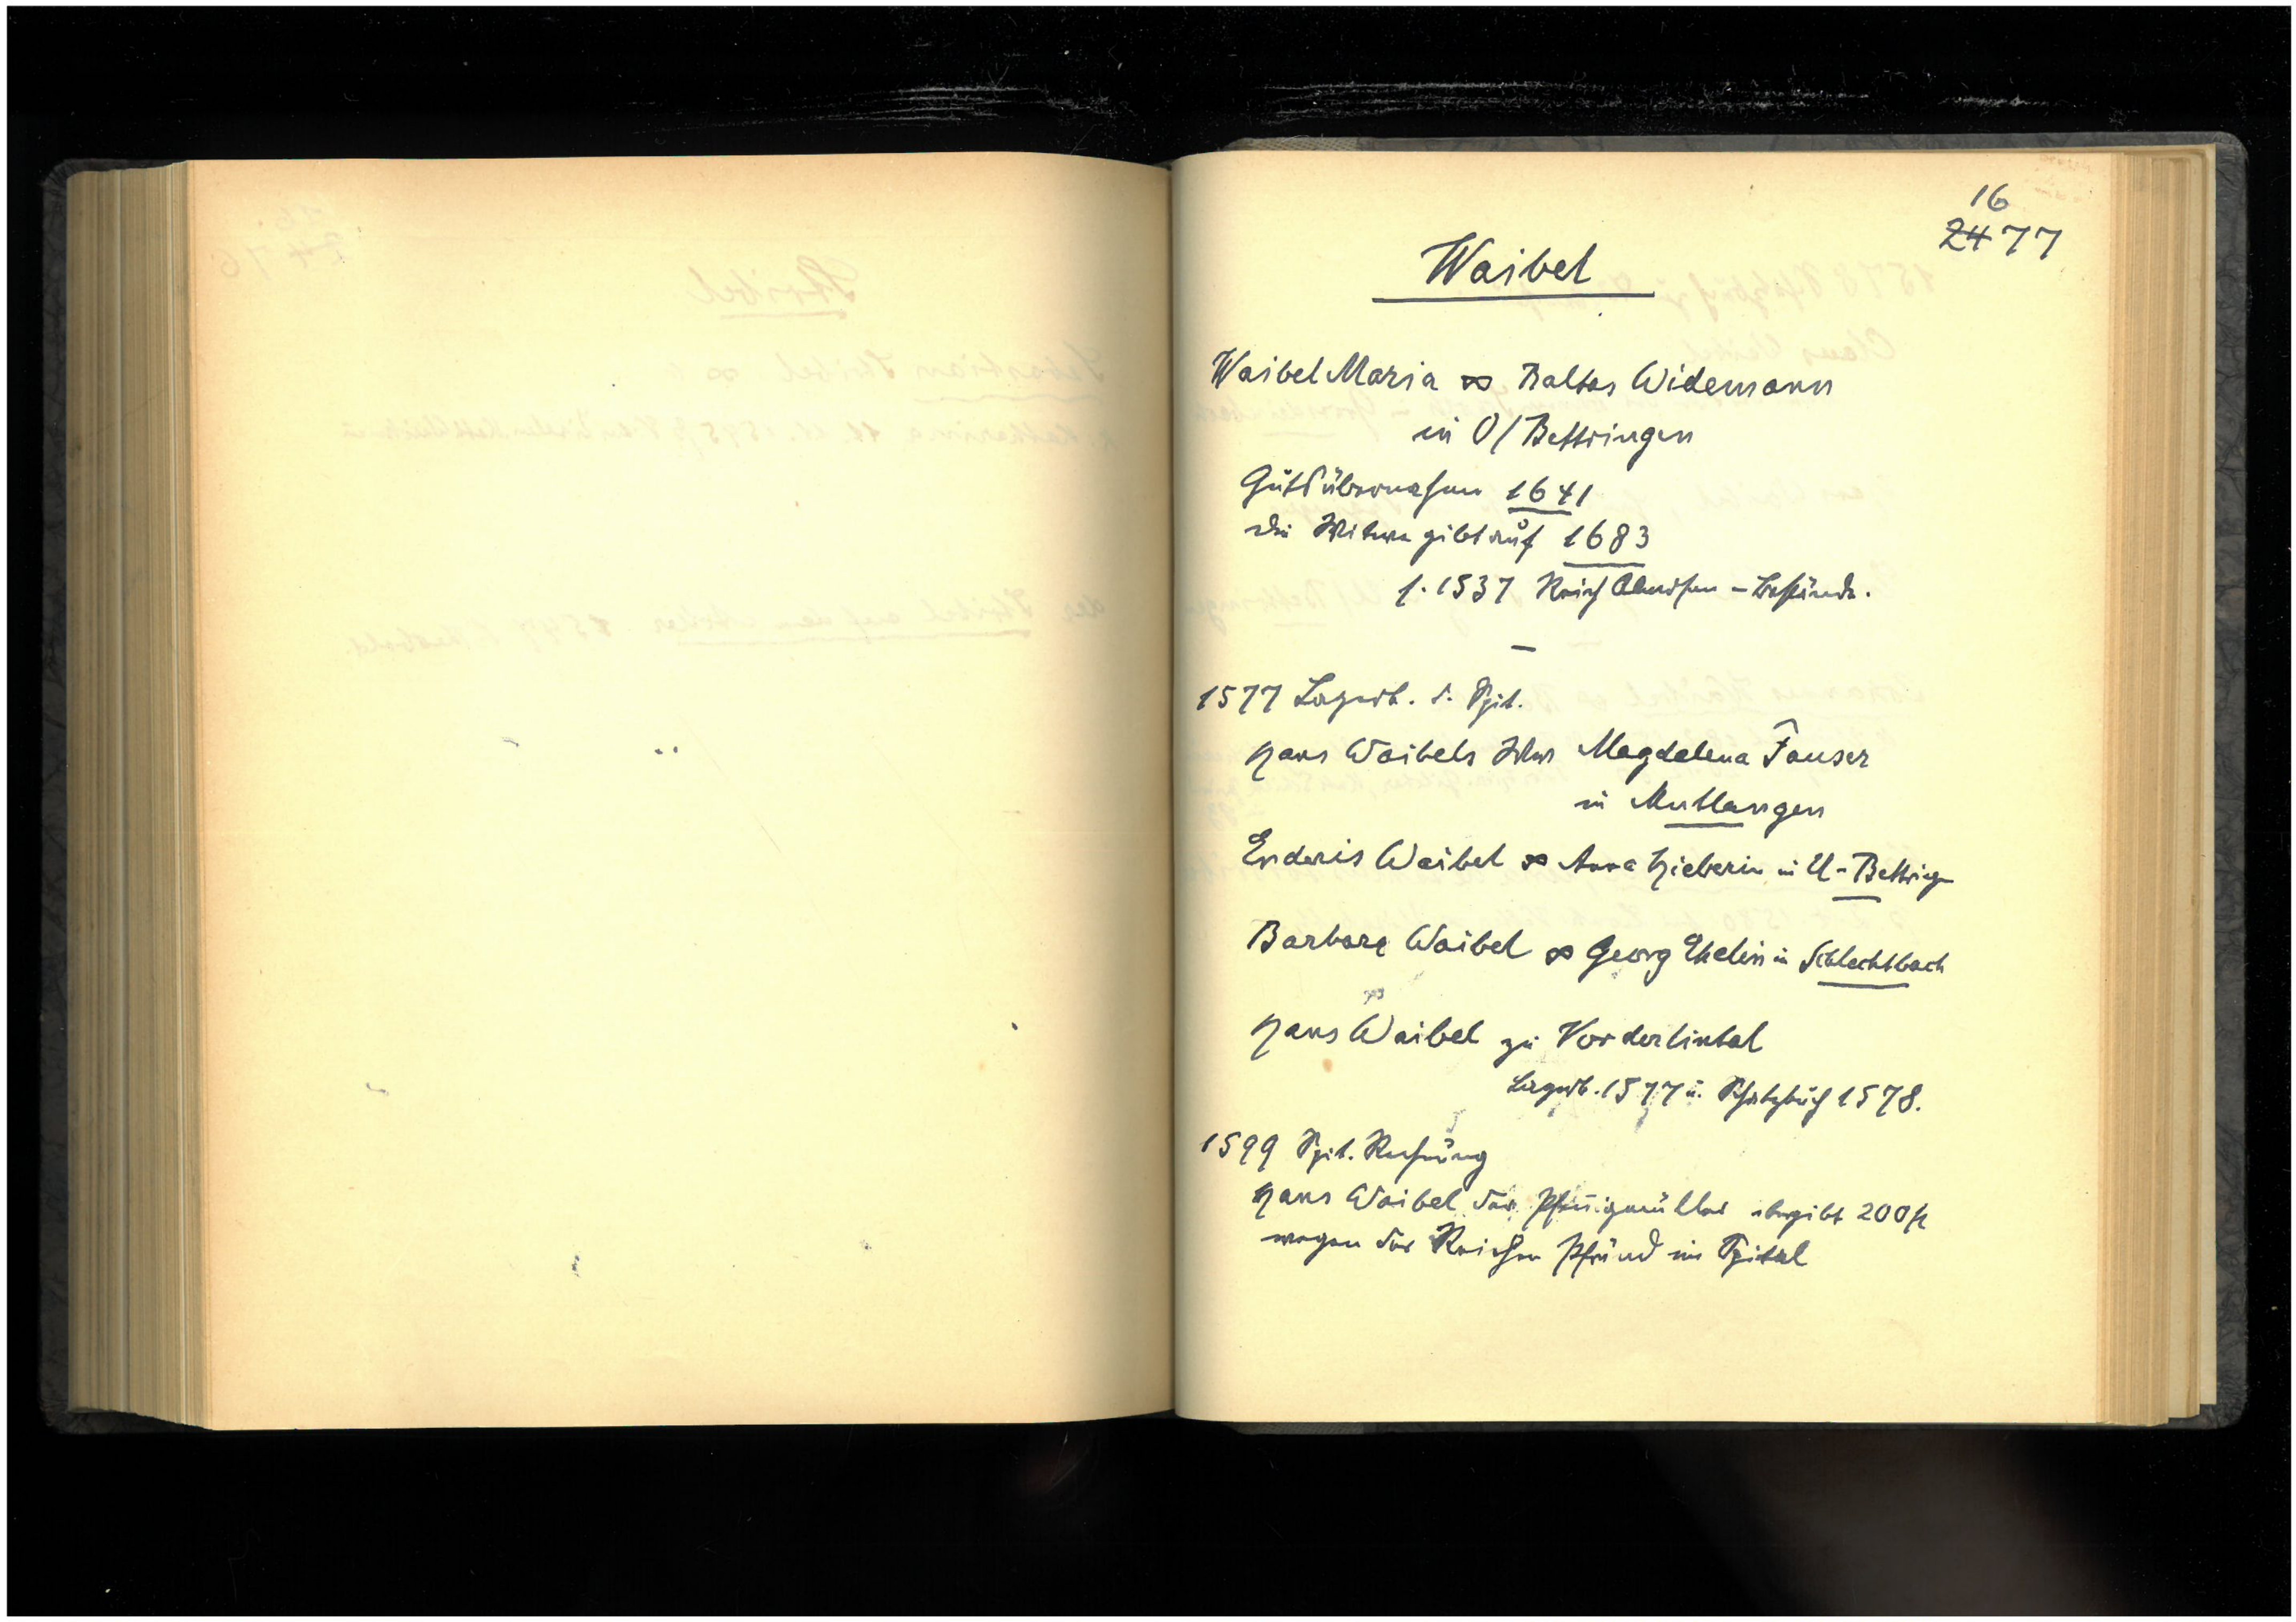 16
2477
Waibel
Waibel Maria ∞ Baltas Widemann
in O/Bettringen
Gutsübernahme 1641
die Witwe gibt auf 1683
f. 1537 Reich Almosen - Bestände.
—
1577 Lagerb. d. Spit.
Hans Waibels Wwe Magdalena Fauser
in Mutlangen
Enderis Waibel ∞ Anna Hieberin in U-Bettringen
Barbara Waibel ∞ Georg in Schlechtbach
Hans Waibel zu Vorderlintal
Lagerb. 1577 u. Schatzbuch 1578.
1599 Spit. Rechnung
Hans Waibel der übergibt 200 fl
wegen der Reichen Pfründ im Spital